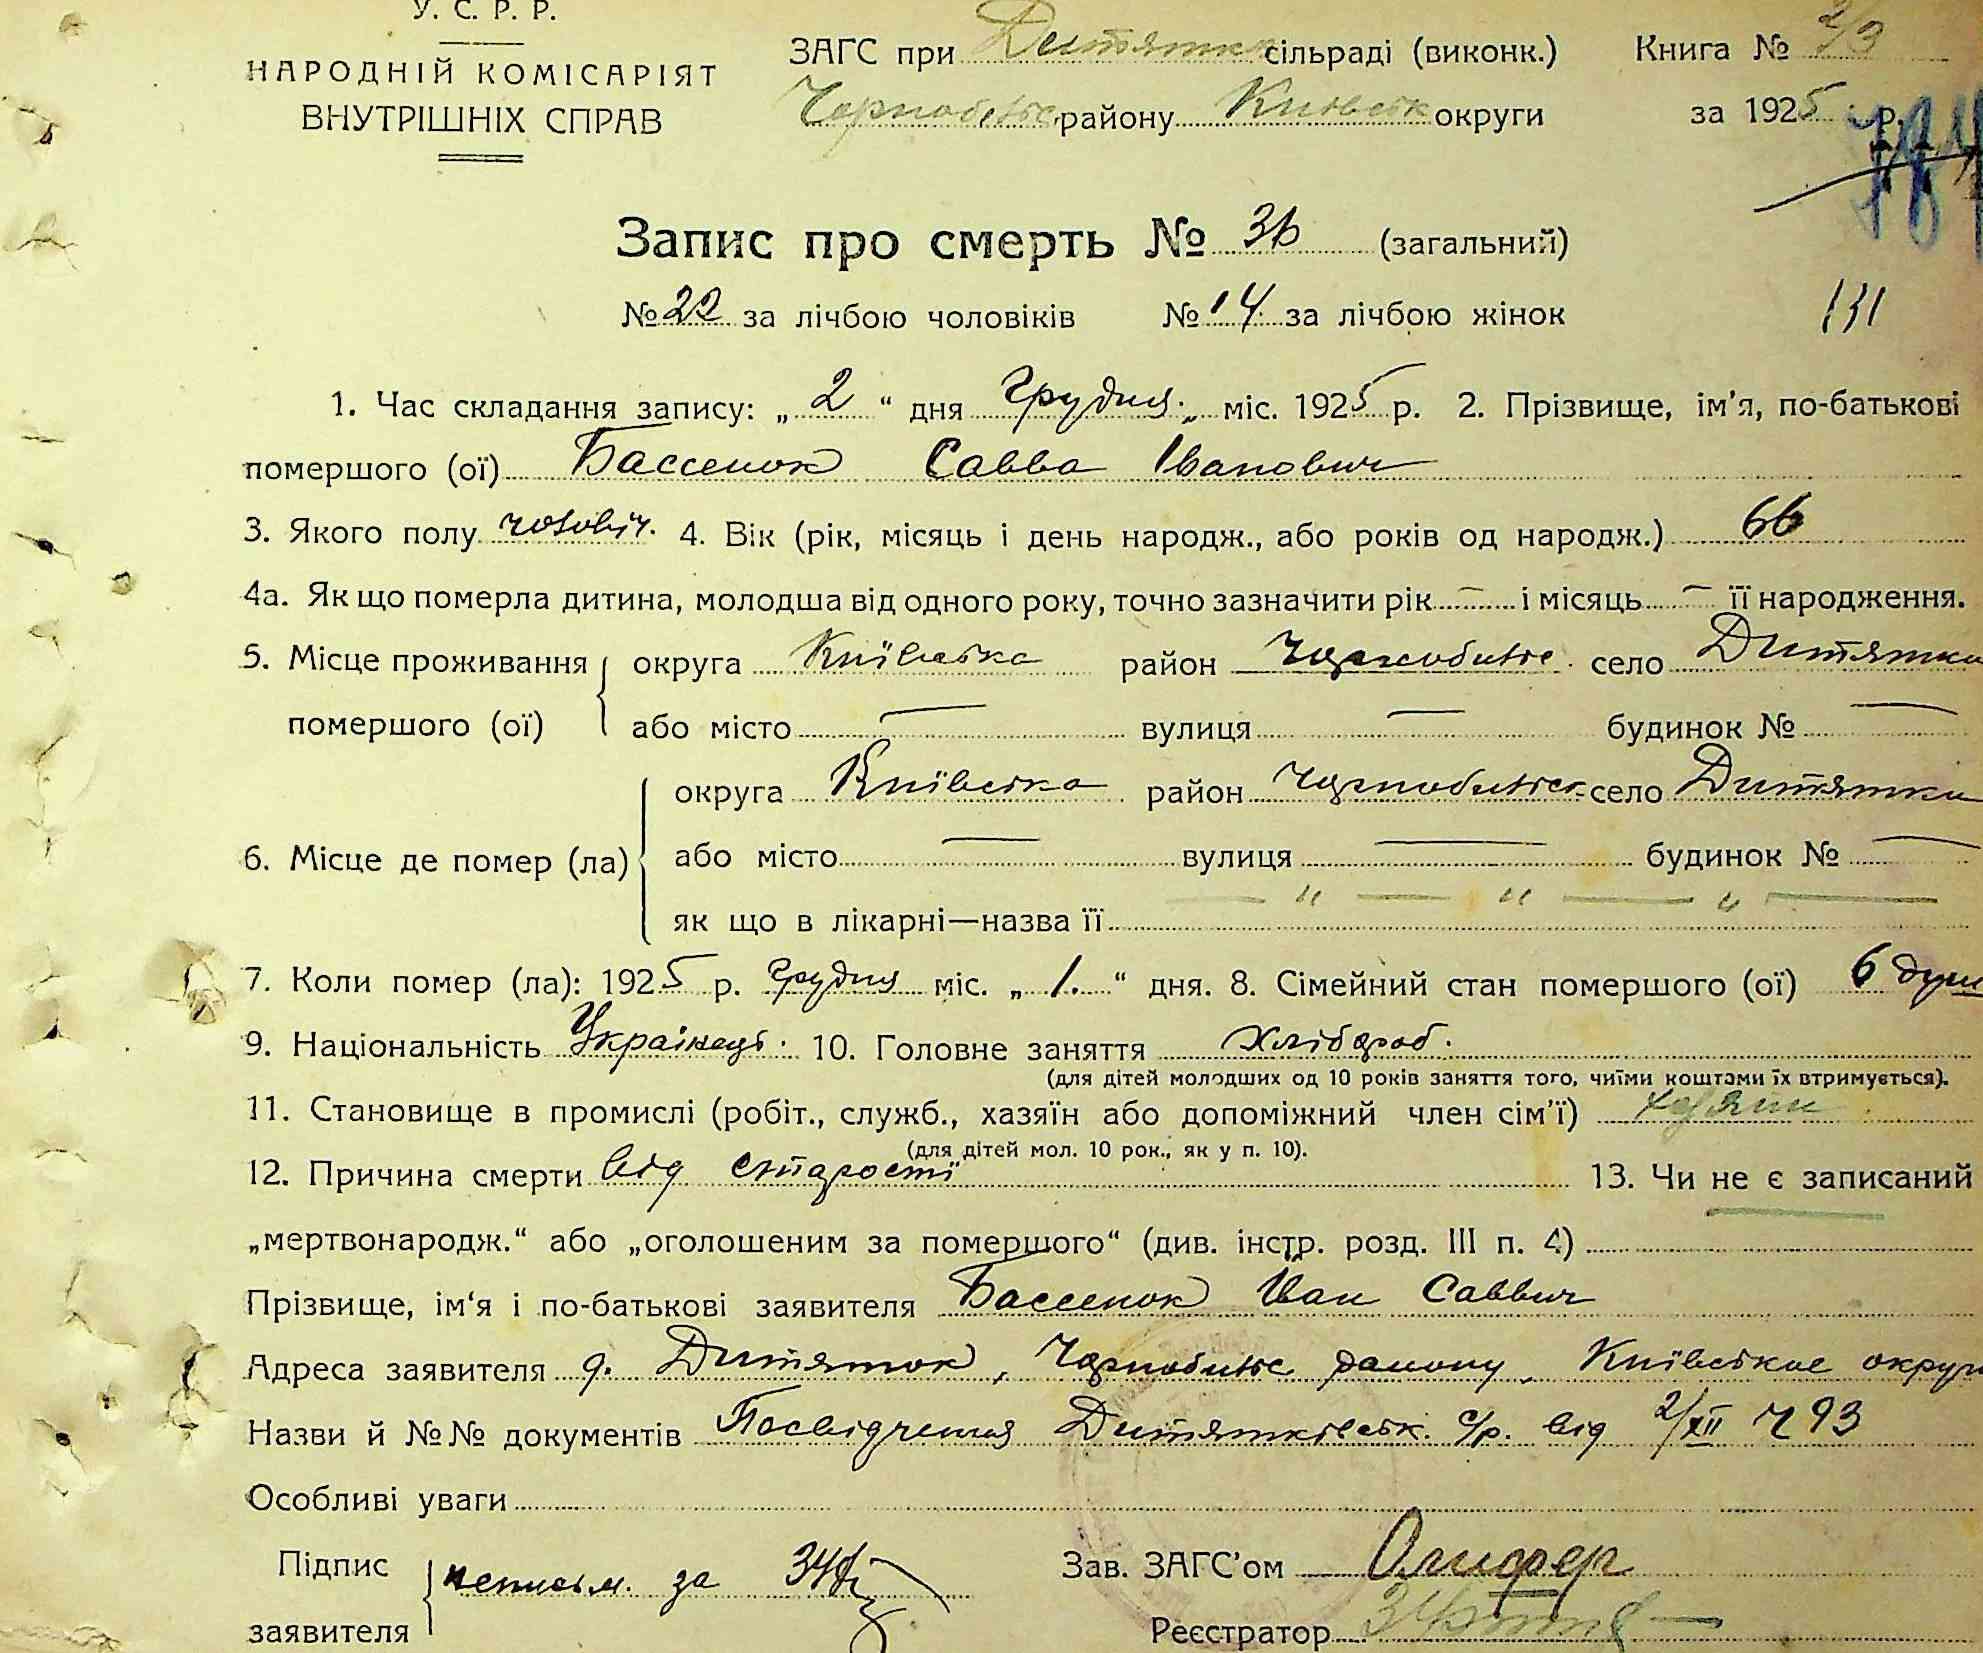 У. С. Р. Р.
НАРОДНІЙ КОМІСАРІЯТ
ВНУТРІШНІХ СПРАВ
ЗАГС при Дитятк сільраді (виконк.) Книга № 2/3
Чорнобильс району Київськ округи за 1925 р.
Запис про смерть № 36 (загальний)
№ 22 за лічбою чоловіків № 14 за лічбою жінок 131
1. Час складання запису: „ 2 “ дня Грудня міс. 1925 р. 2. Прізвище, ім’я, по-батькові
помершого (ої) Бассенок Савва Іванович
3. Якого полу чоловіч. 4. Вік (рік, місяць і день народж., або років од народж.) 66
4а. Як що померла дитина, молодша від одного року, точно зазначити рік — і місяць — її народження.
5. Місце проживання помершого (ої) округа Київська район Чорнобильс. село Дитятки
або місто — вулиця — будинок № —
6. Місце де помер (ла) округа Київська район Чорнобильськ. село Дитятки
або місто — вулиця — будинок № —
як що в лікарні—назва її — „ — „ — „ —
7. Коли помер (ла): 1925 р. грудня міс. „ 1. “ дня. 8. Сімейний стан помершого (ої) 6 душ
9. Національність Українець. 10. Головне заняття Хлібороб.
(для дітей молодших од 10 років заняття того, чиїми коштами їх втримується).
11. Становище в промислі (робіт., служб., хазяїн або допоміжний член сім’ї) хазяин
(для дітей мол. 10 рок., як у п. 10).
12. Причина смерти від старости 13. Чи не є записаний
„мертвонародж.“ або „оголошеним за помершого“ (див. інстр. розд. III п. 4)
Прізвище, ім‘я і по-батькові заявителя Бассенок Іван Саввич
Адреса заявителя д. Дитяток, Чорнобильс району, Київськое округи
Назви й №№ документів Посвідчення Дитятківськ. с/р. від 2/XII Ч 93
Особливі уваги
Підпис заявителя неписьм. за
Зав. ЗАГС’ом Олифер
Реєстратор